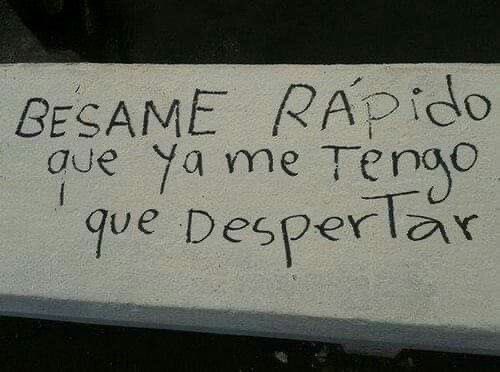 BÉSAME RÁpido
que ya me Tengo
que DesperTar